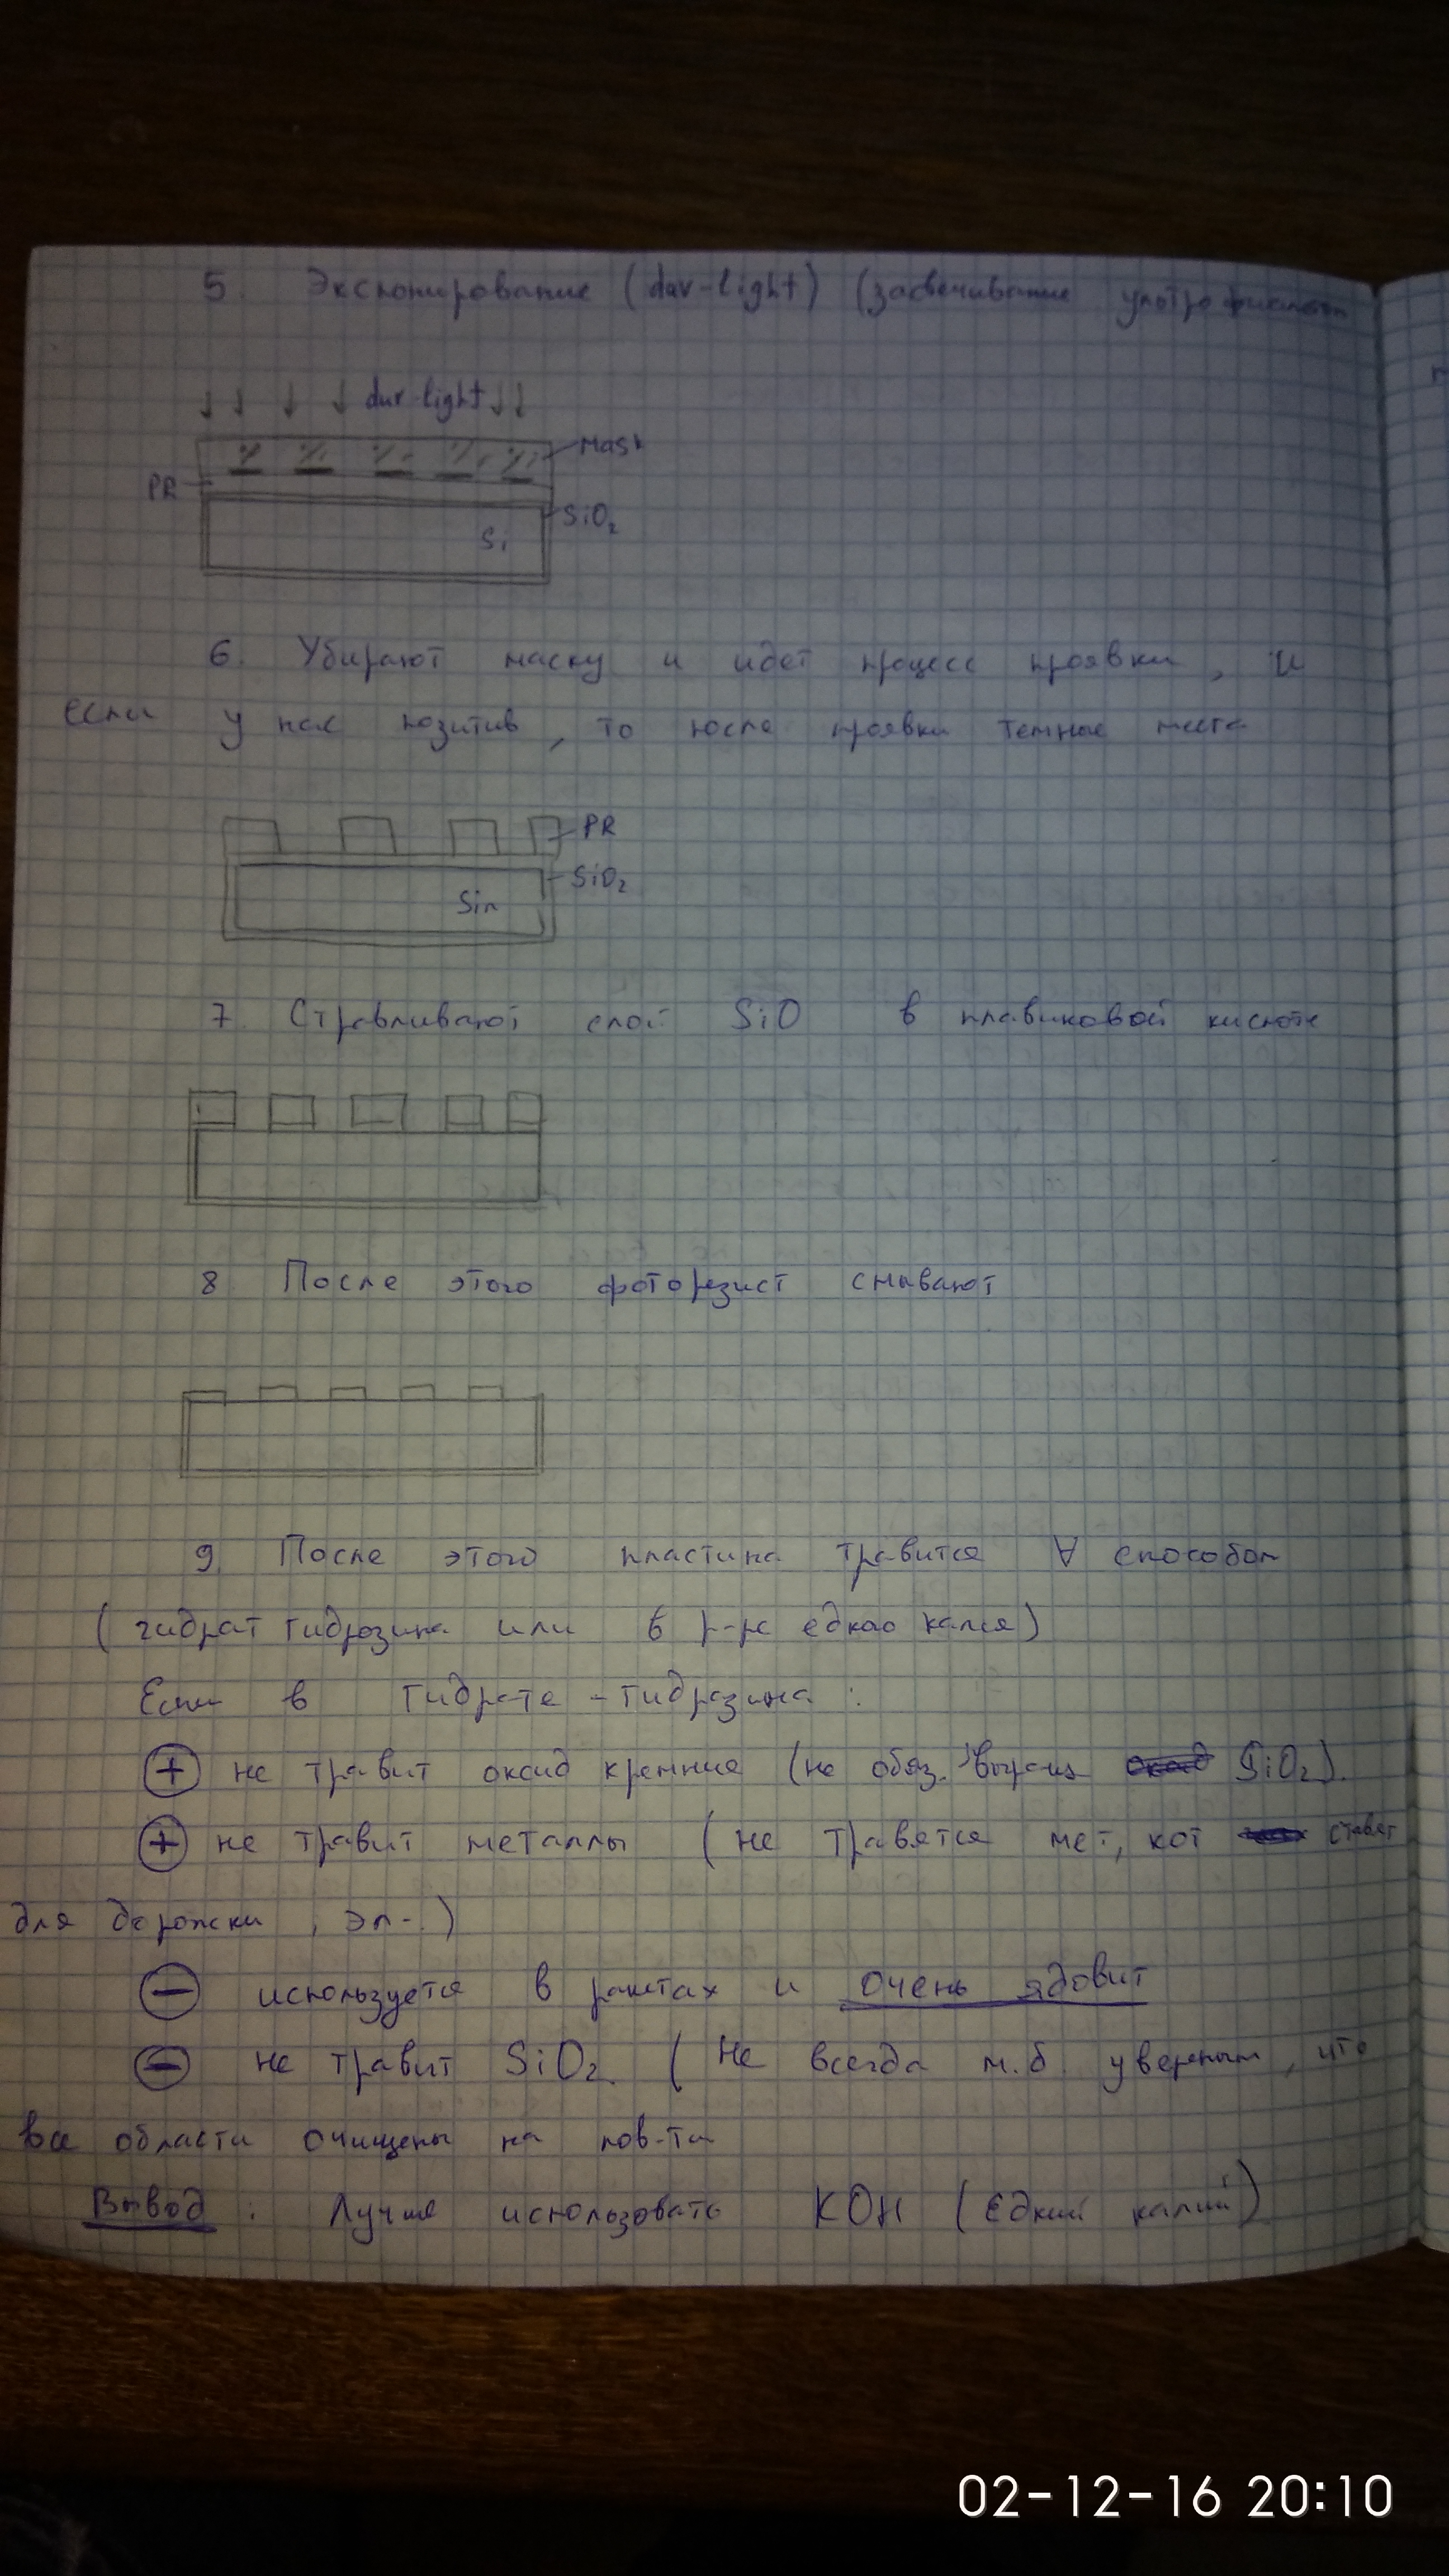 5. Экспонирование (duv-light) (засвечивание
duv-light
Mask
PR
SiO₂
Si
6. Убирают маску и идет процесс проявки, и
если у нас позитив, то после проявки темные места
PR
SiO₂
Si
7. Стравливают слой SiO в плавиковой кислоте
8 После этого фоторезист смывают
9. После этого пластина травится ∀ способом
(гидрат гидрозина или в р-ре едкао калия)
Если в гидрате-гидрозина:
⊕ не травит оксид кремния (не обяз. выращ SiO₂).
⊕ не травит металлы (не травятся мет, кот ставят
для дорожки, эл-)
⊖ используется в ракетах и очень ядовит
⊖ не травит SiO₂. (Не всегда м.б. уверенным, что
все области очищены на пов-ти
Вывод: Лучше использовать KOH (Едкий калий)
02-12-16 20:10